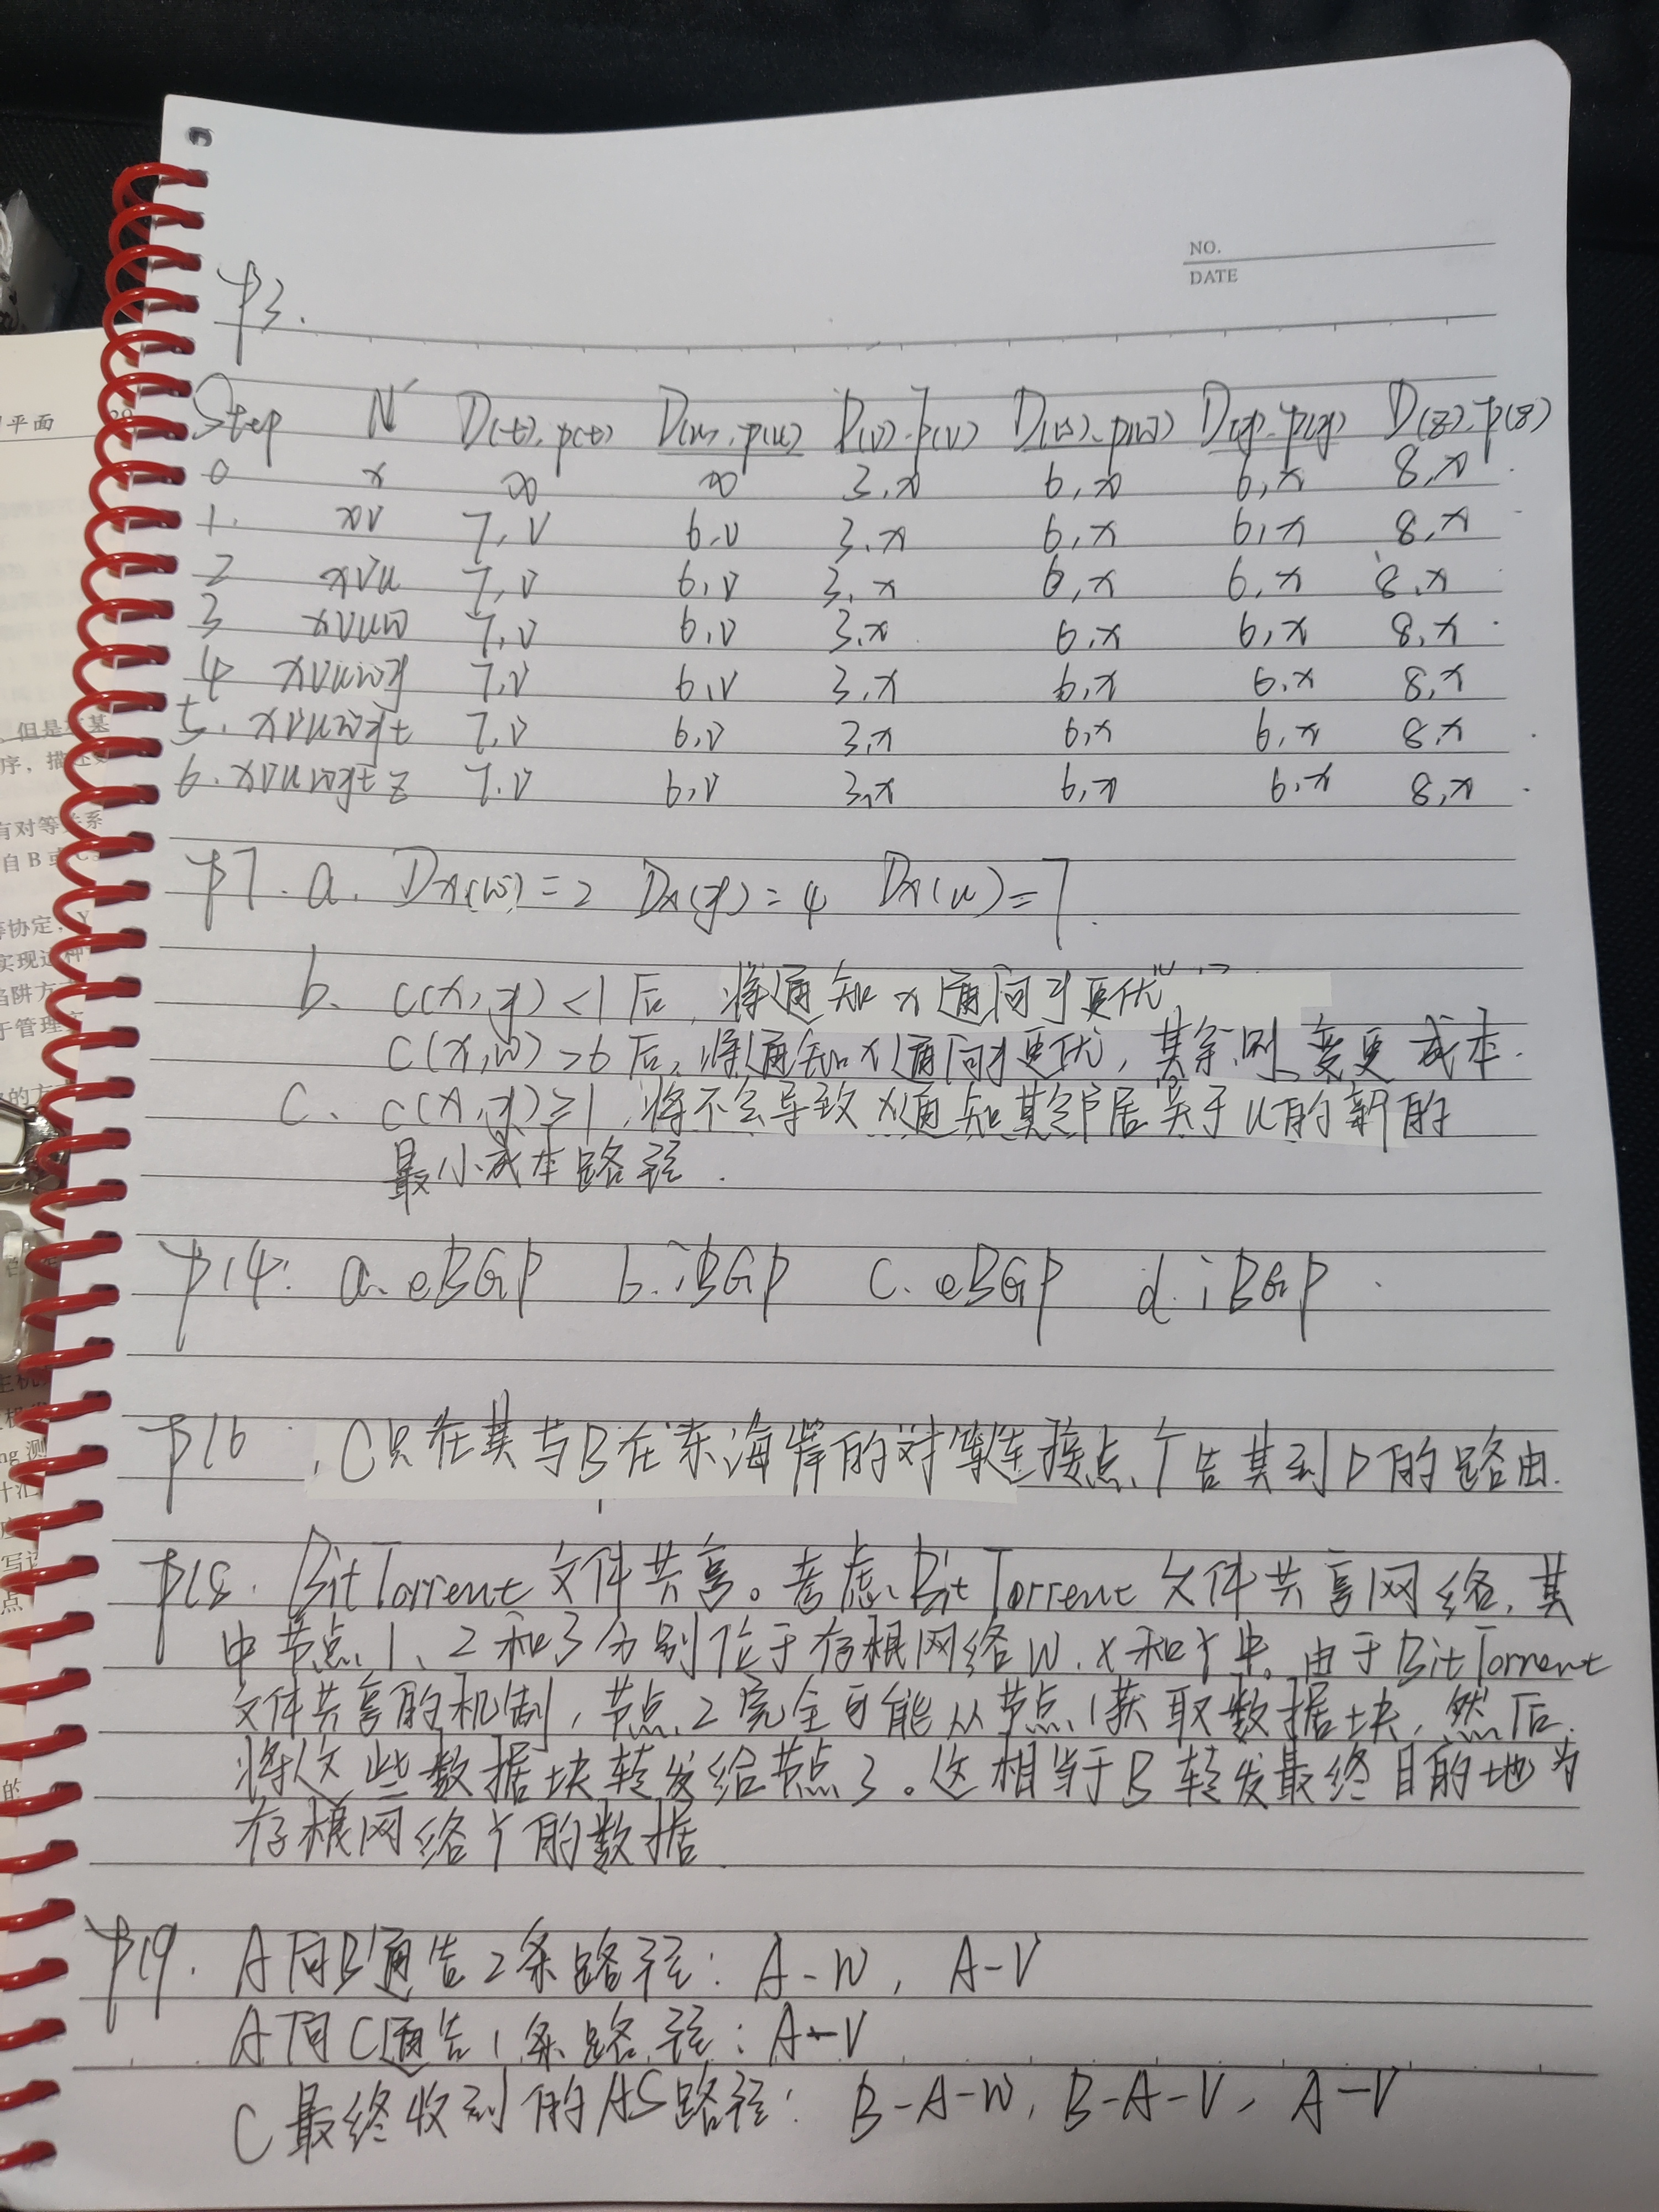 NO.
DATE
P3.
Step N' D(t),p(t) D(u),p(u) D(v),p(v) D(w),p(w) D(y),p(y) D(z),p(z)
0 x ∞ ∞ 3,x 6,x 6,x 8,x
1. xv 7,v 6,v 3,x 6,x 6,x 8,x
2 xvu 7,v 6,v 3,x 6,x 6,x 8,x
3 xvuw 7,v 6,v 3,x 6,x 6,x 8,x
4 xvuwy 7,v 6,v 3,x 6,x 6,x 8,x
5. xvuwyt 7,v 6,v 3,x 6,x 6,x 8,x
6. xvuwytz 7,v 6,v 3,x 6,x 6,x 8,x
P7. a. Dx(w)=2 Dx(y)=4 Dx(u)=7.
b. c(x,y)<1后,将通知x通向y更优
c(x,w)>6后,将通知x通向y更优,其余则变更成本.
c. c(x,y)≥1,将不会导致x通知其邻居关于u的新的
最小成本路径.
P14. a.eBGP b.iBGP c.eBGP d.iBGP.
P16. C只在其与B在东海岸的对等连接点广告其到D的路由.
P18. BitTorrent文件共享。考虑BitTorrent文件共享网络,其
中节点1、2和3分别位于存根网络W、X和Y中。由于BitTorrent
文件共享的机制,节点2完全可能从节点1获取数据块,然后
将这些数据块转发给节点3。这相当于B转发最终目的地为
存根网络Y的数据.
P19. A向B通告2条路径:A-W, A-V
A向C通告1条路径:A-V
C最终收到的AS路径:B-A-W, B-A-V, A-V